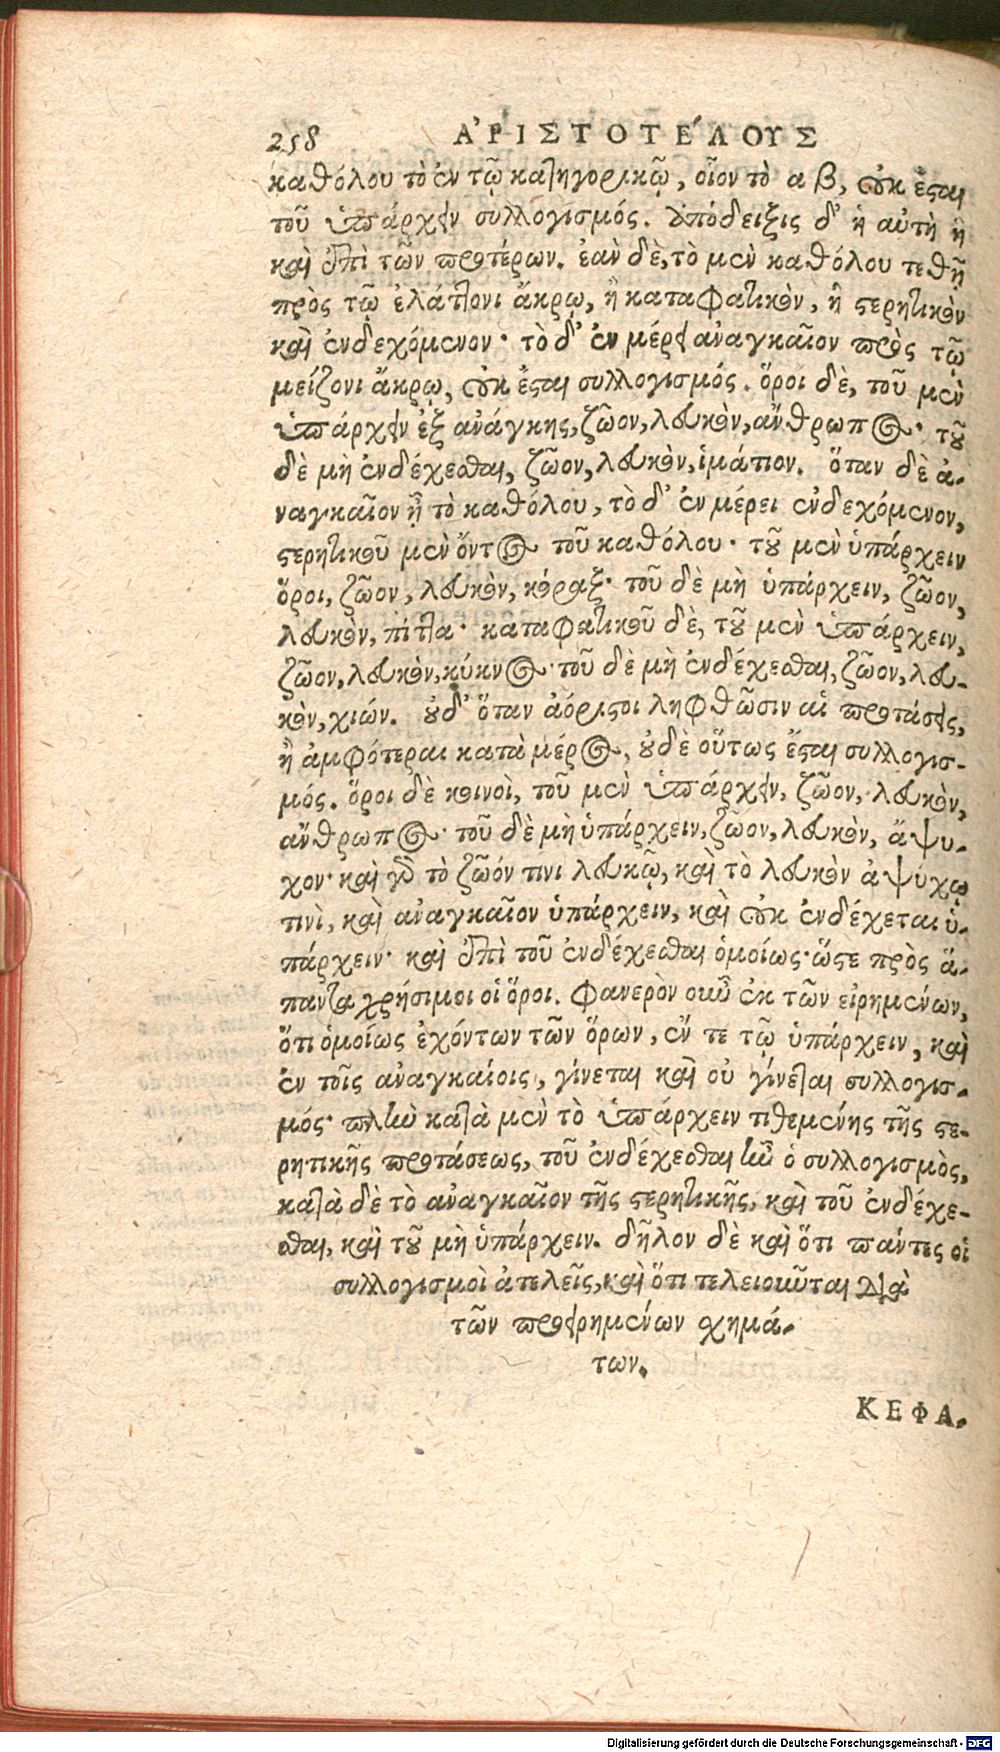 258 ΑʹΡΙΣΤΟΤΕʹΛΟΥΣ
καθόλου τὸ ἐν τῷ κατηγορικῷ, οἷον τὸ α β, οὐκ ἔσται
τοῦ ὑπάρχειν συλλογισμός. ἀπόδειξις δ' ἡ αὐτὴ ἣ
καὶ ἐπὶ τῶν προτέρων. ἐὰν δὲ, τὸ μὲν καθόλου τεθῇ
πρὸς τῷ ἐλάττονι ἄκρῳ, ἢ καταφατικὸν, ἢ στερητικὸν
καὶ ἐνδεχόμενον· τὸ δ' ἐν μέρει ἀναγκαῖον πρὸς τῷ
μείζονι ἄκρῳ, οὐκ ἔσται συλλογισμός. ὅροι δὲ, τοῦ μὲν
ὑπάρχειν ἐξ ἀνάγκης, ζῶον, λευκὸν, ἄνθρωπος· τοῦ
δὲ μὴ ἐνδέχεσθαι, ζῶον, λευκὸν, ἱμάτιον. ὅταν δὲ ἀ-
ναγκαῖον ᾖ τὸ καθόλου, τὸ δ' ἐν μέρει ἐνδεχόμενον,
στερητικοῦ μὲν ὄντος τοῦ καθόλου· τοῦ μὲν ὑπάρχειν
ὅροι, ζῶον, λευκὸν, κόραξ· τοῦ δὲ μὴ ὑπάρχειν, ζῶον,
λευκὸν, πίττα· καταφατικοῦ δὲ, τοῦ μὲν ὑπάρχειν,
ζῶον, λευκὸν, κύκνος· τοῦ δὲ μὴ ἐνδέχεσθαι, ζῶον, λευ-
κὸν, χιών. οὐδ' ὅταν ἀόριστοι ληφθῶσιν αἱ προτάσεις,
ἢ ἀμφότεραι κατὰ μέρος, οὐδὲ οὕτως ἔσται συλλογισ-
μός. ὅροι δὲ κοινοὶ, τοῦ μὲν ὑπάρχειν, ζῶον, λευκὸν,
ἄνθρωπος· τοῦ δὲ μὴ ὑπάρχειν, ζῶον, λευκὸν, ἄψυ-
χον· καὶ γὰρ τὸ ζῶόν τινι λευκῷ, καὶ τὸ λευκὸν ἀψύχῳ
τινὶ, καὶ ἀναγκαῖον ὑπάρχειν, καὶ οὐκ ἐνδέχεται ὑ-
πάρχειν· καὶ ἐπὶ τοῦ ἐνδέχεσθαι ὁμοίως· ὥστε πρὸς ἅ-
παντα χρήσιμοι οἱ ὅροι. Φανερὸν οὖν ἐκ τῶν εἰρημένων,
ὅτι ὁμοίως ἐχόντων τῶν ὅρων, ἔν τε τῷ ὑπάρχειν, καὶ
ἐν τοῖς ἀναγκαίοις, γίνεται καὶ οὐ γίνεται συλλογισ-
μός· πλὴν κατὰ μὲν τὸ ὑπάρχειν τιθεμένης τῆς στε-
ρητικῆς προτάσεως, τοῦ ἐνδέχεσθαι ἦν ὁ συλλογισμὸς,
κατὰ δὲ τὸ ἀναγκαῖον τῆς στερητικῆς, καὶ τοῦ ἐνδέχε-
σθαι, καὶ τοῦ μὴ ὑπάρχειν. δῆλον δὲ καὶ ὅτι πάντες οἱ
συλλογισμοὶ ἀτελεῖς, καὶ ὅτι τελειοῦνται διὰ
τῶν προειρημένων σχημά-
των.
ΚΕΦΑ.
Digitalisierung gefördert durch die Deutsche Forschungsgemeinschaft - DFG